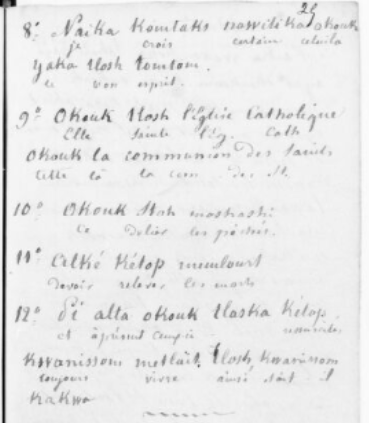 25
8° Naika Komtaks nawitika okouk
je crois certain celuila
yaka tlosh tomtom.
le bon esprit.
9° Okouk tlosh l'église Catholique
Elle sainte l'ég. Cath
Okouk la communion des saints
cette là la com des St.
10° Okouk stoh mashashi
ce délier les péchés.
11° Celké Kétop memloust
devoir relever les morts
12° Pi alta okouk tlaska Kétop
et àprésent
Kwanissom mitlait. tlosh, kwanissom
toujours vivre ainsi soit il
Kakwa